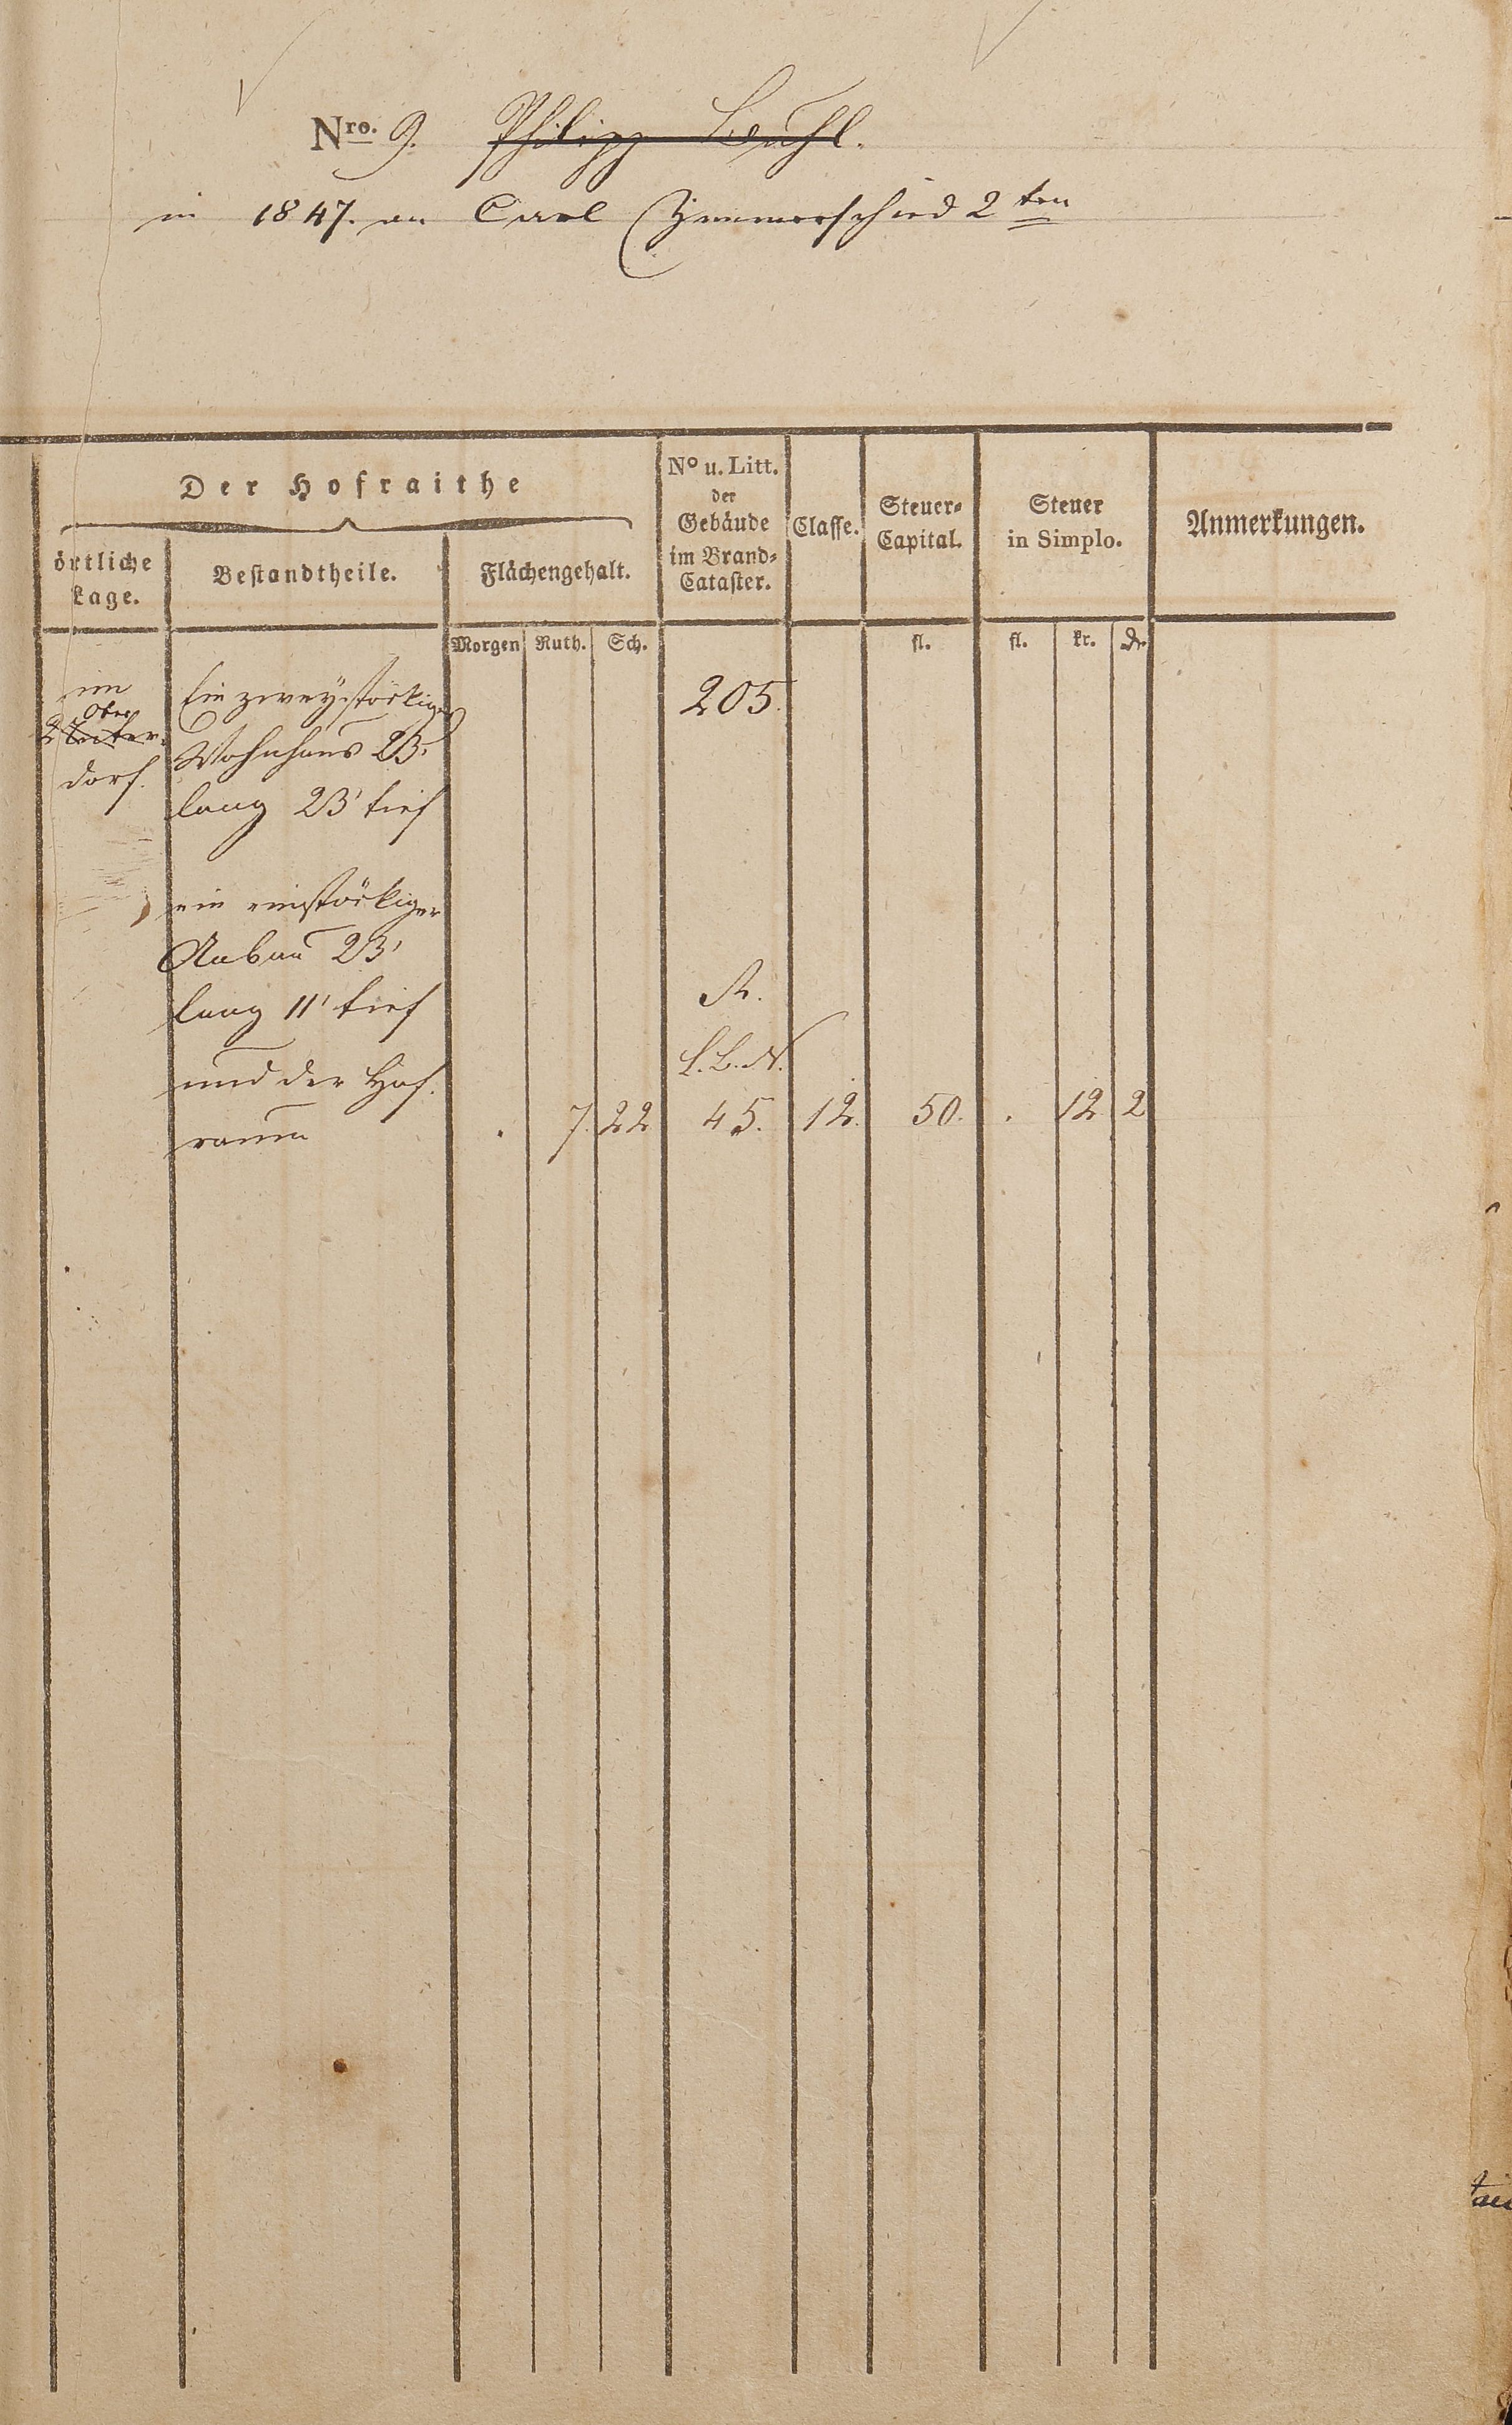 Nro. 9. Philipp Buhl.
in 1847. an Carl Zimmerschied 2ten
Der Hofraithe
örtliche Lage.
Bestandtheile.
Flächengehalt.
No u. Litt. der Gebäude im Brand-Cataster.
Classe.
Steuer-Capital.
Steuer in Simplo.
Anmerkungen.
Morgen Ruth. Sch. fl. fl. kr. dr.
im Ein zweystöckiges 205.
Ober
Unter Wohnhaus 23'
dorf. lang 23' tief
ein einstöckiger
Anbau 23'
lang 11' tief R.
und der Hof- L.B.N.
raum . 7. 22 45. 12. 50. . 12 2